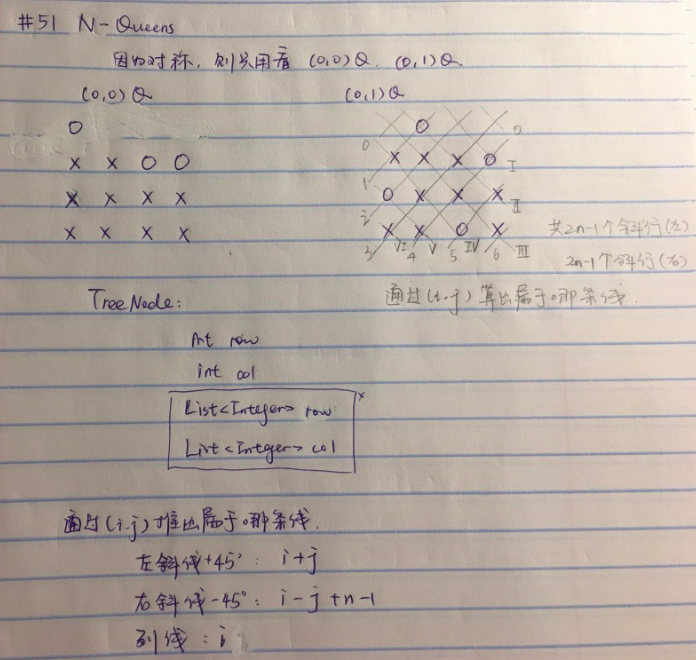 #51 N-Queens
因为对称，则只用看 (0,0)Q. (0,1)Q
(0,0)Q
(0,1)Q
O
x x O O
x x x x
x x x x
O 0
0 x x x O I
1 O x x x II
2 x x O x
3 VI 4 V 5 IV 6 III
共2n-1个斜行(左)
2n-1个斜行(右)
通过(i,j)算出属于哪条线.
TreeNode:
int row
int col
List<Integer> row x
List<Integer> col
通过(i,j)推出属于哪条线.
左斜线+45°: i+j
右斜线-45°: i-j+n-1
列线: j